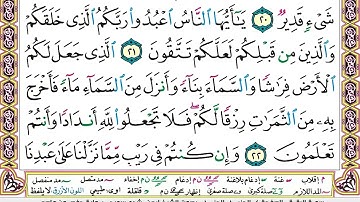 شَيْءٍ قَدِيرٌ ٢٠ يَٰٓأَيُّهَا ٱلنَّاسُ ٱعْبُدُوا۟ رَبَّكُمُ ٱلَّذِى خَلَقَكُمْ
وَٱلَّذِينَ مِن قَبْلِكُمْ لَعَلَّكُمْ تَتَّقُونَ ٢١ ٱلَّذِى جَعَلَ لَكُمُ
ٱلْأَرْضَ فِرَٰشًا وَٱلسَّمَآءَ بِنَآءً وَأَنزَلَ مِنَ ٱلسَّمَآءِ مَآءً فَأَخْرَجَ
بِهِۦ مِنَ ٱلثَّمَرَٰتِ رِزْقًا لَّكُمْ فَلَا تَجْعَلُوا۟ لِلَّهِ أَندَادًا وَأَنتُمْ
تَعْلَمُونَ ٢٢ وَإِن كُنتُمْ فِى رَيْبٍ مِّمَّا نَزَّلْنَا عَلَىٰ عَبْدِنَا